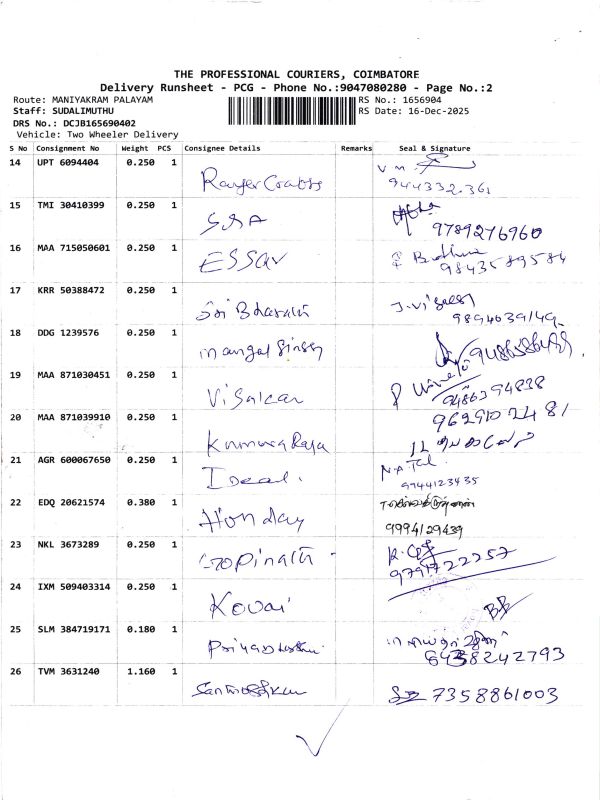 THE PROFESSIONAL COURIERS, COIMBATORE
Delivery Runsheet - PCG - Phone No.:9047080280 - Page No.:2
Route: MANIYAKRAM PALAYAM RS No.: 1656904
Staff: SUDALIMUTHU RS Date: 16-Dec-2025
DRS No.: DCJB165690402
Vehicle: Two Wheeler Delivery
S No Consignment No Weight PCS Consignee Details Remarks Seal & Signature
14 UPT 6094404 0.250 1
944332361
15 TMI 30410399 0.250 1
9789276960
16 MAA 715050601 0.250 1
ESSAV
9843589584
17 KRR 50388472 0.250 1
Sri Bharath
18 DDG 1239576 0.250 1
mangal Singh
19 MAA 871030451 0.250 1
9486394838
20 MAA 871039910 0.250 1 9629102481
Kumura Raja
21 AGR 600067650 0.250 1
Ideal.
9944123435
22 EDQ 20621574 0.380 1
Honday
9994129439
23 NKL 3673289 0.250 1
Gopinath
9791722257
24 IXM 509403314 0.250 1
Kovai
25 SLM 384719171 0.180 1
26 TVM 3631240 1.160 1
7358861003